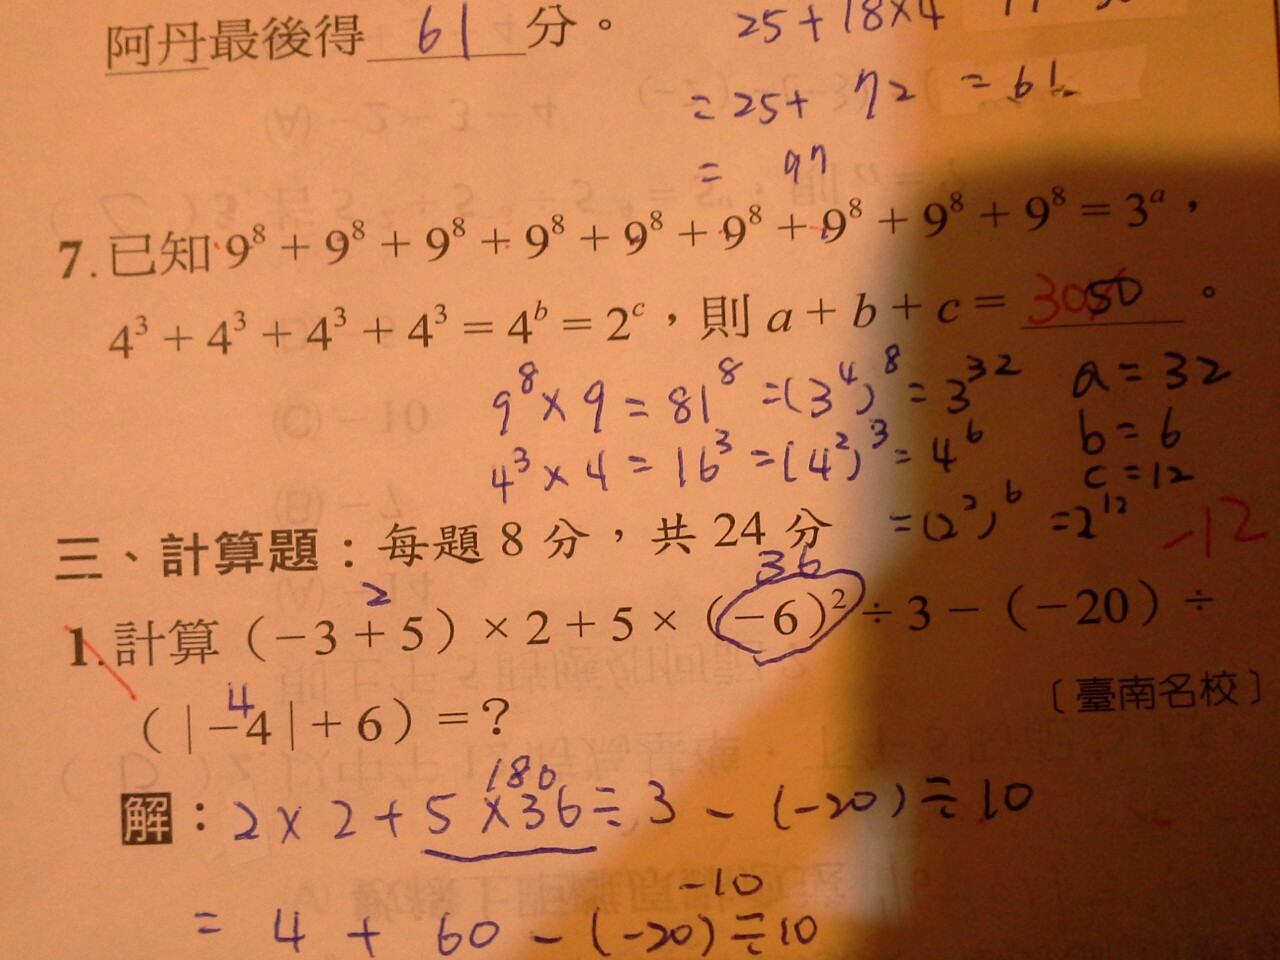 阿丹最後得 61 分。
25+18×4
=25+ 72 = 61
= 97
7.已知 9⁸ + 9⁸ + 9⁸ + 9⁸ + 9⁸ + 9⁸ + 9⁸ + 9⁸ + 9⁸ = 3ᵃ，
4³ + 4³ + 4³ + 4³ = 4ᵇ = 2ᶜ，則 a + b + c = 50 。
9⁸ × 9 = 81⁸ = (3⁴)⁸ = 3³² a = 32
4³ × 4 = 16³ = (4²)³ = 4⁶ b = 6
c = 12
= (2²)⁶ = 2¹² -12
三、計算題：每題 8 分，共 24 分
2 36
1.計算（－3＋5）×2＋5×（－6）²÷3－（－20）÷
〔臺南名校〕
4
（|－4|＋6）＝？
180
解：2×2+5×36÷3-(-20)÷10
-10
= 4 + 60 - (-20)÷10